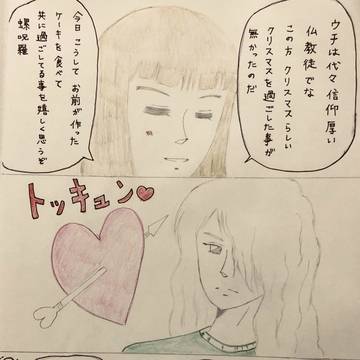 ウチは代々信仰厚い
仏教徒でな
この方クリスマスらしい
クリスマスを過ごした事が
無かったのだ
今日こうしてお前が作った
ケーキを食べて
共に過ごしてる事を嬉しく思うぞ
螺呪羅
トッキュン♥